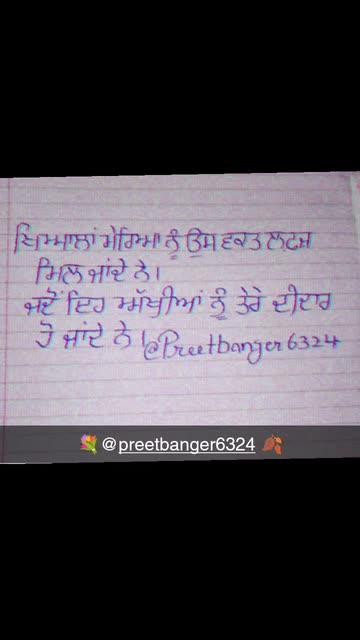 ਖਿਆਲਾਂ ਮੇਰਿਆ ਨੂੰ ਉਸ ਵਕਤ ਲਫਜ਼
ਮਿਲ ਜਾਂਦੇ ਨੇ।
ਜਦੋਂ ਇਹ ਅੱਖੀਆਂ ਨੂੰ ਤੇਰੇ ਦੀਦਾਰ
ਹੋ ਜਾਂਦੇ ਨੇ। @Preetbanger6324
💐 @preetbanger6324 🍂